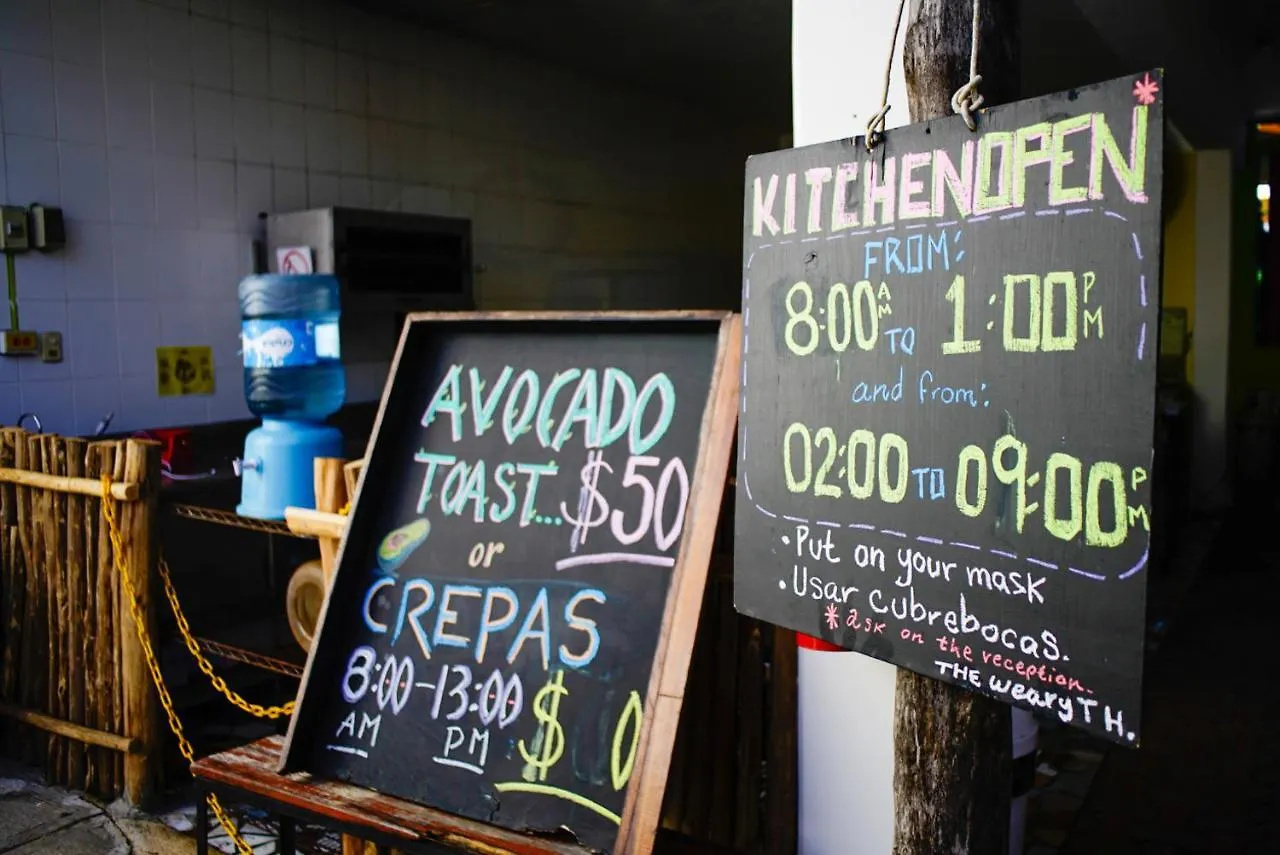 AVOCADO
TOAST... $50
or
CREPAS
8:00-13:00
AM PM
$ 0
KITCHEN OPEN*
FROM:
8:00 AM TO 1:00 PM
and from:
02:00 TO 09:00 PM
• Put on your mask
• Usar cubrebocas.
* ask on the reception.
THE wearyTH.